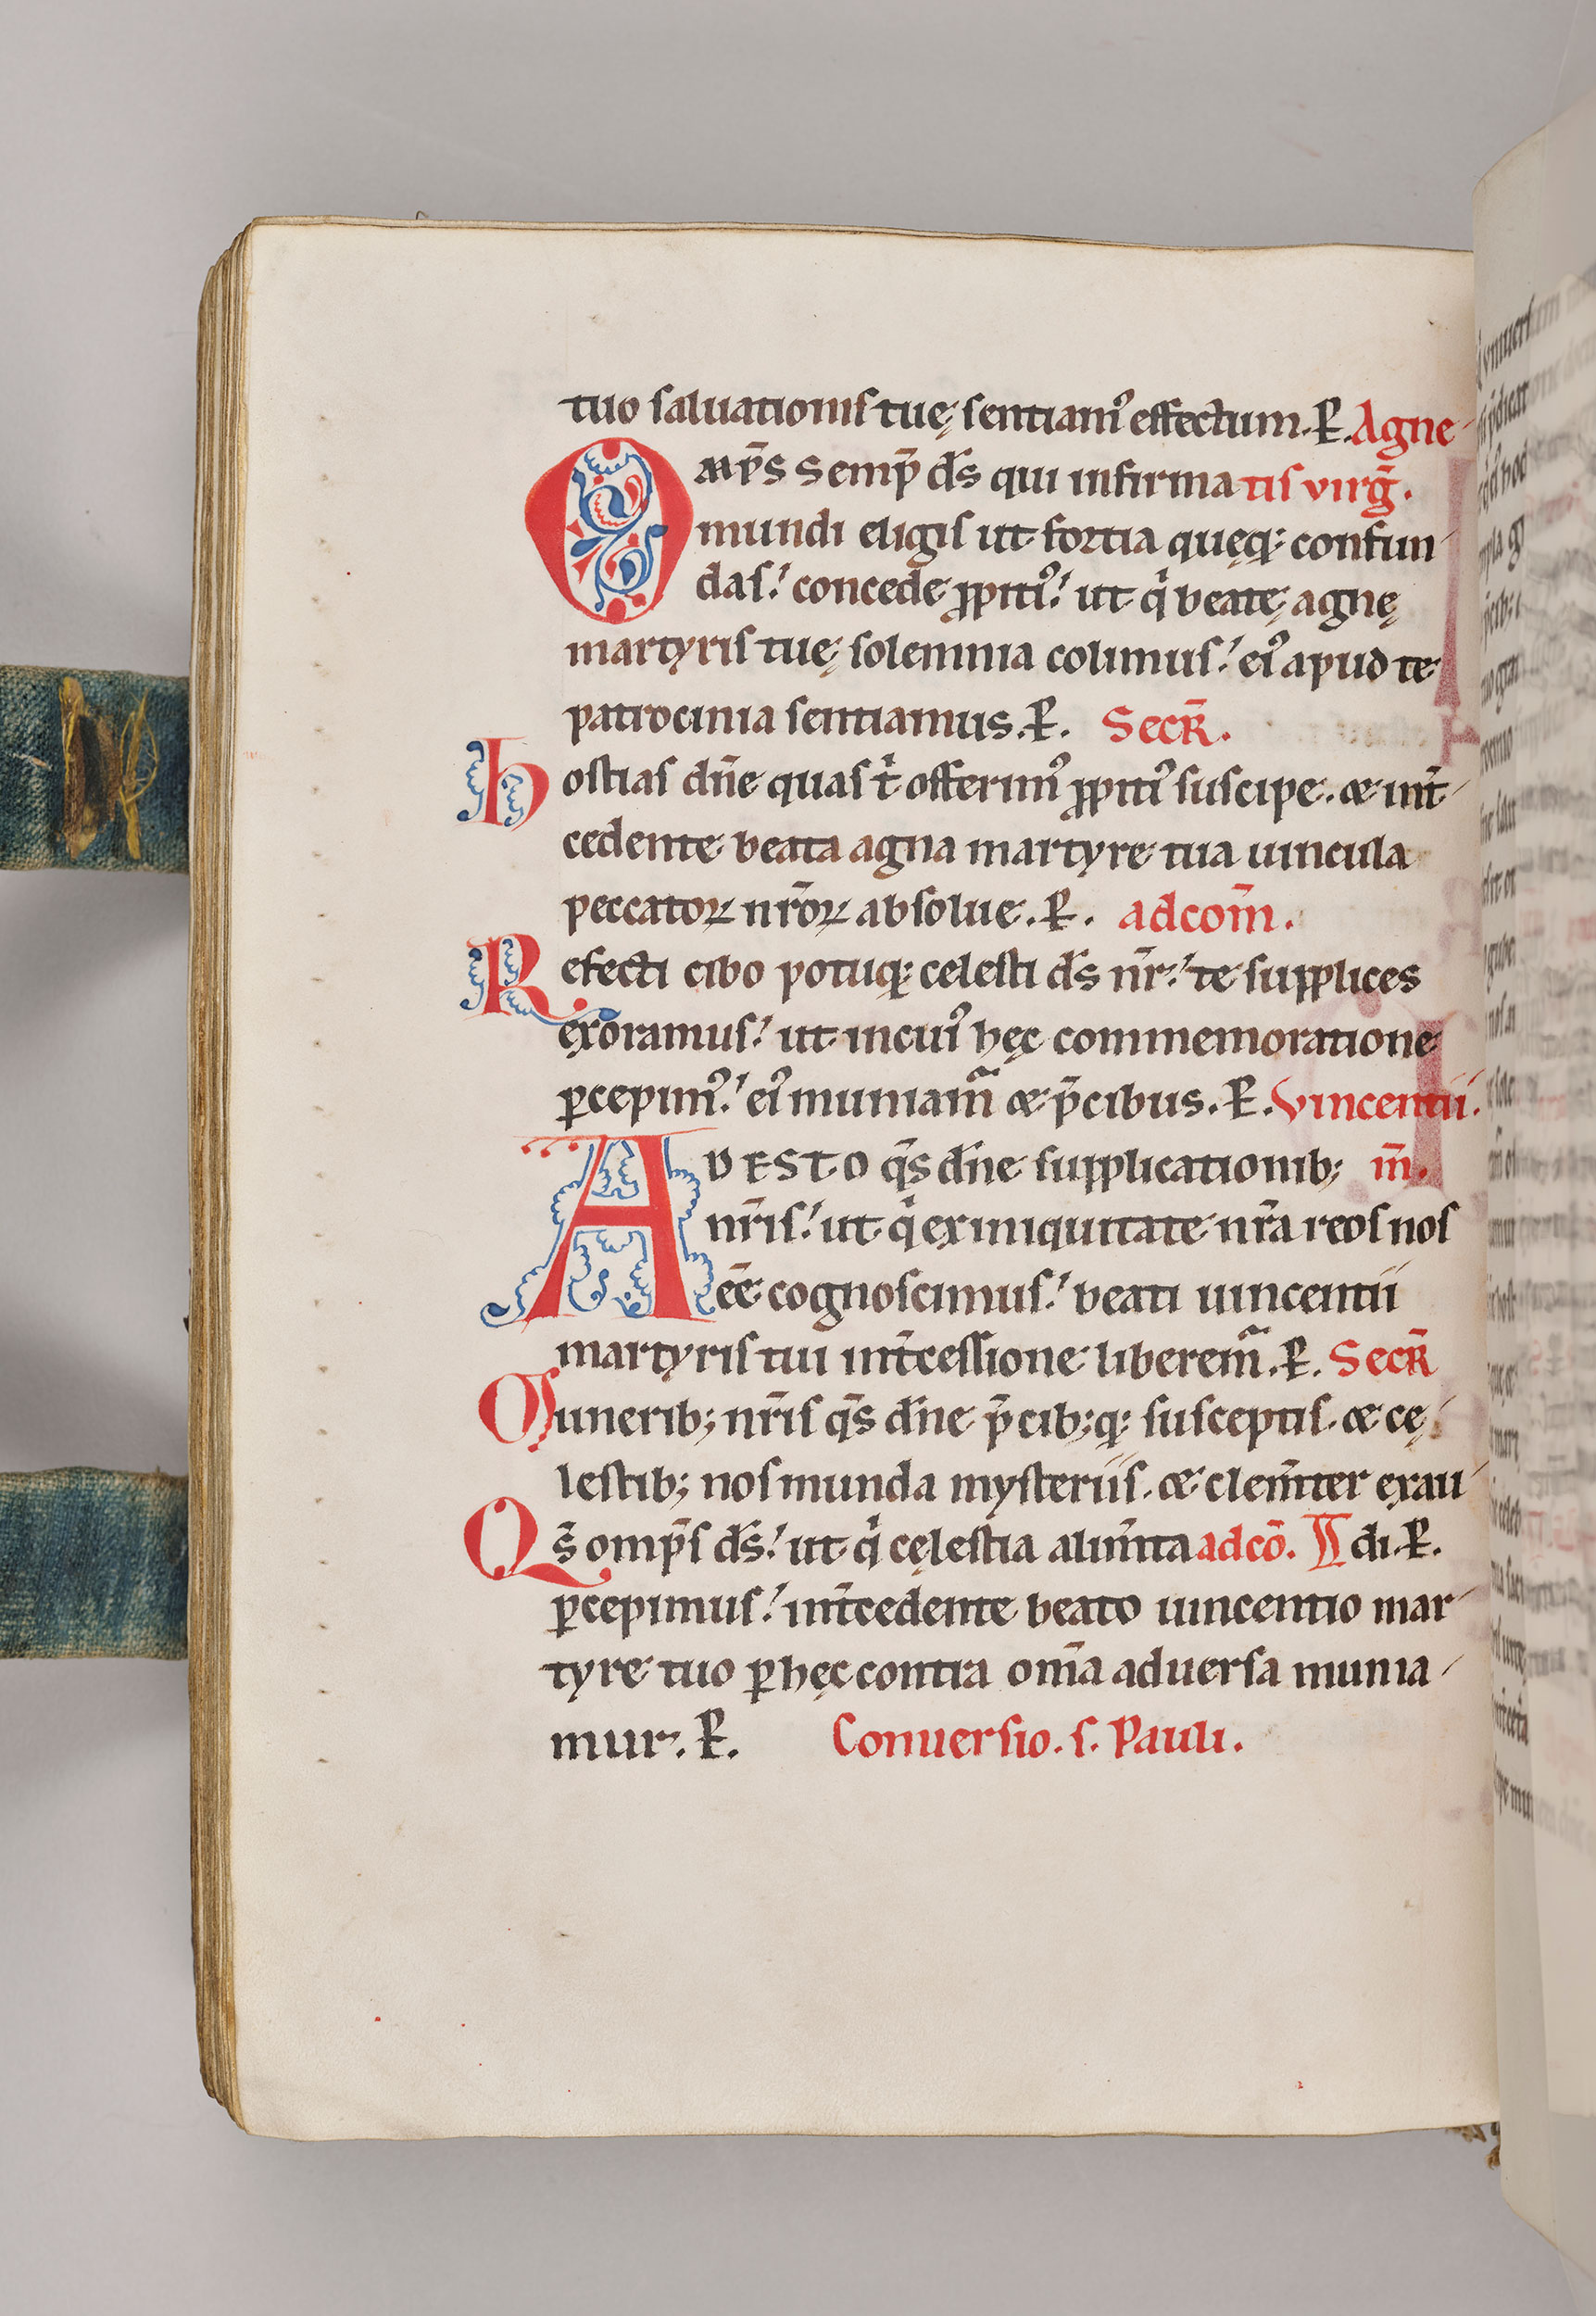 tuo saluationis tuę sentiam᷒ effectum. P̶. Agne
OMP̄S Semp̄ d̄s qui infirma tis virḡ.
mundi eligis ut fortia quęq; confun
das. concede ꝓpiti᷒. ut q̇ beatę agnę
martyris tuę solemnia colimus. ei᷒ apud te
patrocinia sentiamus. P̶. Secr̄.
hostias dn̄e quas ṫ offerim᷒ ꝓpiti᷒ suscipe. & int̄
cedente beata agna martyre tua uincula
peccatoꝝ nr̄oꝝ absolue. P̶. ad com̄.
Refecti cibo potuq; celesti d̄s nr̄. te supplices
exoramus. ut in cui᷒ hęc commemoratione
ꝑcepim᷒. ei᷒ muniam̄ & p̄cibus. P̶. Vincentii.
ADESTO q̄s dn̄e supplicationib; m̄.
nr̄is. ut q̇ ex iniquitate nr̄a reos nos
ee̅ cognoscimus. beati uincentii
martyris tui int̄cessione liberem̄. P̶. Secr̄
Munerib; nr̄is q̄s dn̄e p̄cib; q; susceptis. & cę
lestib; nos munda mysteriis. & clem̄ter exau
Qs̄ omp̄s d̄s. ut q̇ cęlestia alim̄ta ad co̅. di. P̶.
ꝑcepimus. int̄cedente beato uincentio mar
tyre tuo ꝑ hęc contra om̄a aduersa munia
mur. P̶. Conuersio. s. Pauli.